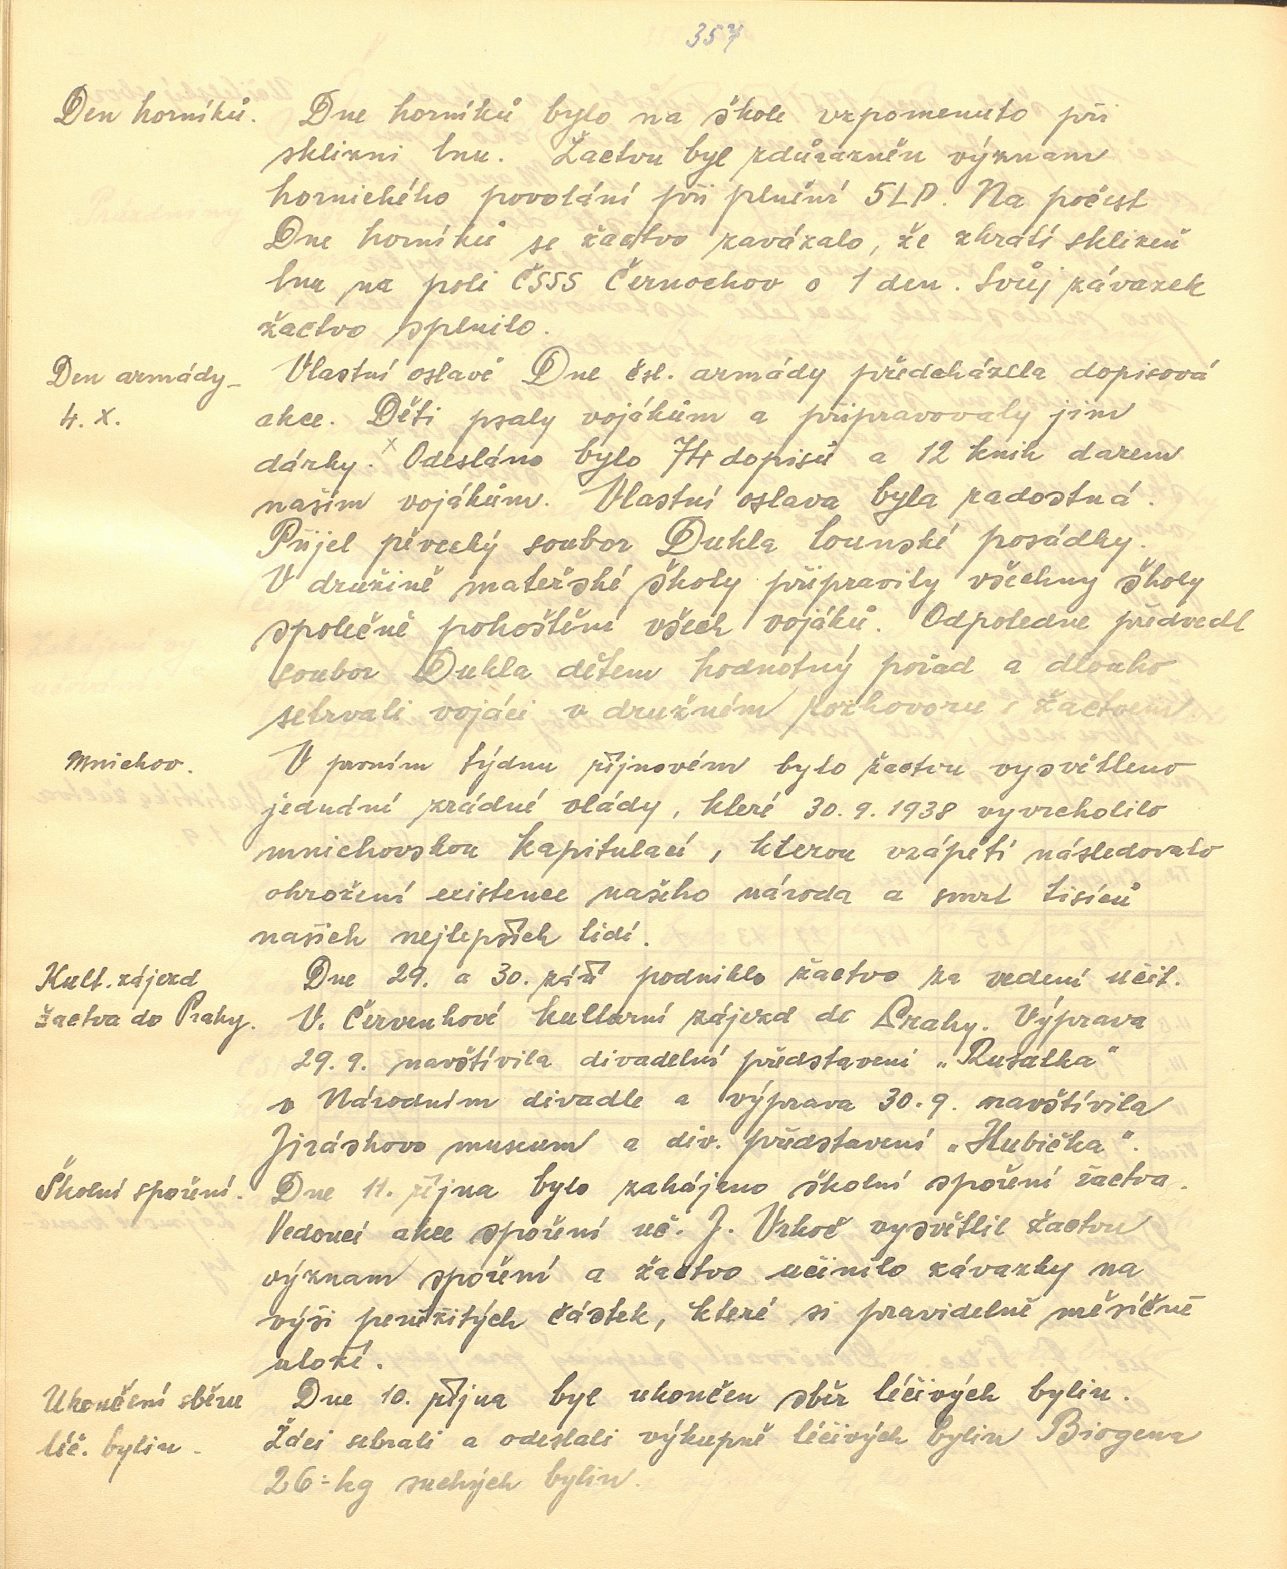 357
Den horníků. Dne horníků bylo na škole vzpomenuto při
sklizni lnu. Žactvu byl zdůrazněn význam
hornického povolání při plnění 5LP. Na počest
Dne horníků se žactvo zavázalo, že zkrátí sklizeň
lnu na poli ČSSS Černochov o 1 den. Svůj závazek
žactvo splnilo.
Den armády – Vlastní oslavě Dne čsl. armády předcházela dopisová
4. X. akce. Děti psaly vojákům a připravovaly jim
dárky. x Odesláno bylo 74 dopisů a 12 knih darem
našim vojákům. Vlastní oslava byla radostná.
Přijel pěvecký soubor Dukla lounské posádky.
V družině mateřské školy připravily všechny školy
společné pohoštění všech vojáků. Odpoledne předvedl
soubor Dukla dětem hodnotný pořad a dlouho
setrvali vojáci v družném rozhovoru s žactvem.
Mnichov. V prvním týdnu říjnovém bylo žactvu vysvětleno
jednání zrádné vlády, které 30. 9. 1938 vyvrcholilo
mnichovskou kapitulací, kterou vzápětí následovalo
ohrožení existence našeho národa a smrt tisíců
našich nejlepších lidí.
Kult. zájezd Dne 29. a 30. září podniklo žactvo za vedení učit.
žactva do Prahy. V. Červenkové kulturní zájezd do Prahy. Výprava
29. 9. navštívila divadelní představení „Rusalka"
v Národním divadle a výprava 30. 9. navštívila
Jiráskovo museum a div. představení „Hubička".
Školní spoření. Dne 11. října bylo zahájeno školní spoření žactva.
Vedoucí akce spoření uč. J. Vrkoč vysvětlil žactvu
význam spoření a žactvo učinilo závazky na
výši peněžitých částek, které si pravidelně měsíčně
uloží.
Ukončení sběru Dne 10. října byl ukončen sběr léčivých bylin.
léč. bylin. Žáci sebrali a odeslali výkupně léčivých bylin Biogena
26 kg suchých bylin.